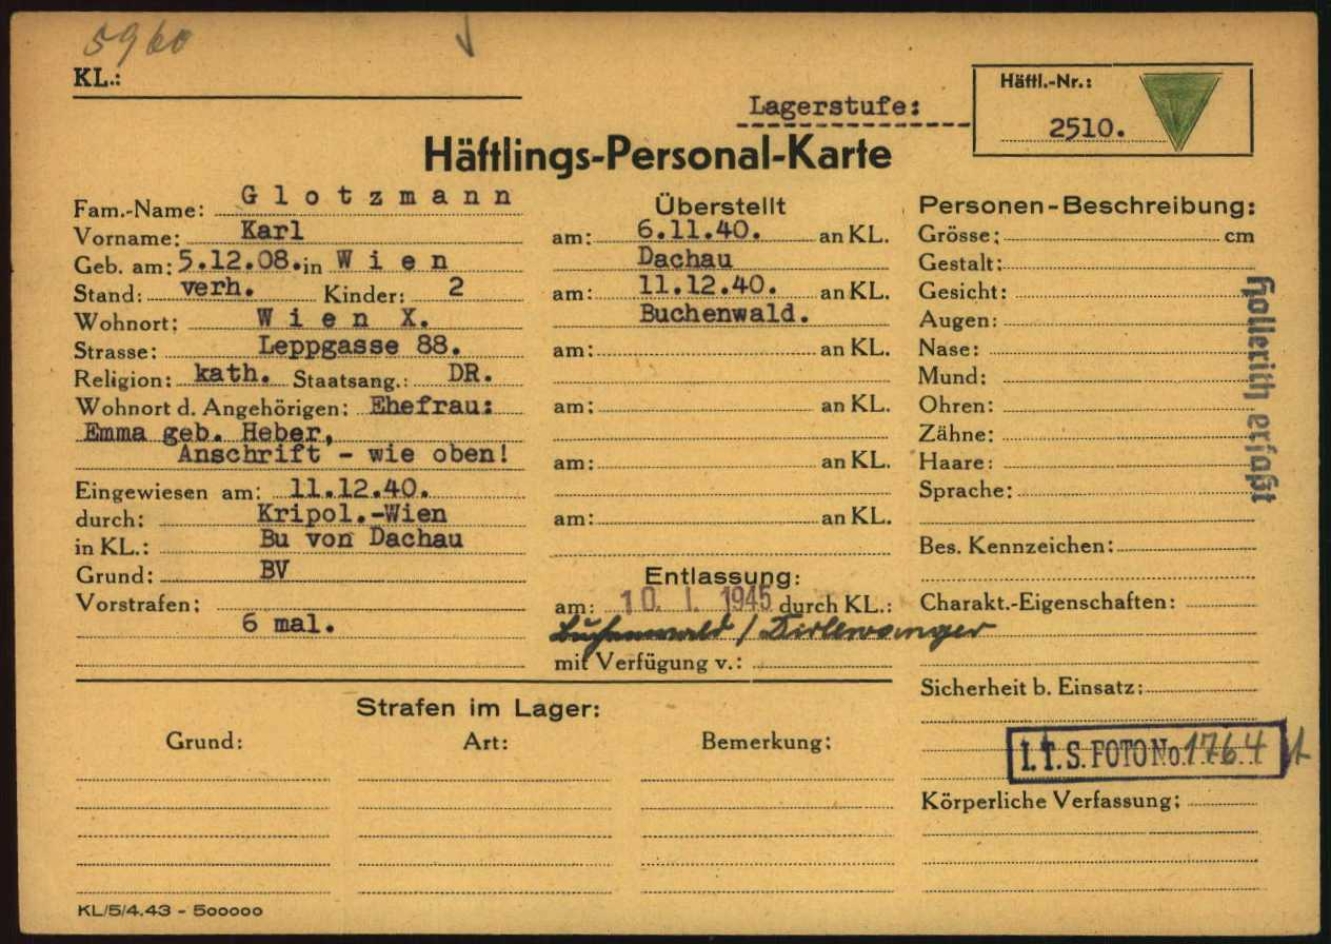 5960
KL.:
Häftl.-Nr.:
2510.
Lagerstufe:
Häftlings-Personal-Karte
Fam.-Name: Glotzmann
Vorname: Karl
Geb. am: 5.12.08. in Wien
Stand: verh. Kinder: 2
Wohnort: Wien X.
Strasse: Leppgasse 88.
Religion: kath. Staatsang.: DR.
Wohnort d. Angehörigen: Ehefrau:
Emma geb. Heber,
Anschrift - wie oben!
Eingewiesen am: 11.12.40.
durch: Kripol.-Wien
in KL.: Bu von Dachau
Grund: BV
Vorstrafen:
6 mal.
Überstellt
am: 6.11.40. an KL.
Dachau
am: 11.12.40. an KL.
Buchenwald.
am: an KL.
am: an KL.
am: an KL.
am: an KL.
Entlassung:
am: 10. 1. 1945 durch KL.:
Buchenwald / Dirlewanger
mit Verfügung v.:
Personen-Beschreibung:
Grösse: cm
Gestalt:
Gesicht:
Augen:
Nase:
Mund:
Ohren:
Zähne:
Haare:
Sprache:
Bes. Kennzeichen:
Charakt.-Eigenschaften:
Sicherheit b. Einsatz:
I.T.S. FOTO No. 1764
Körperliche Verfassung:
Hollerith erfaßt
Strafen im Lager:
Grund: Art: Bemerkung:
KL/5/4.43 - 500000